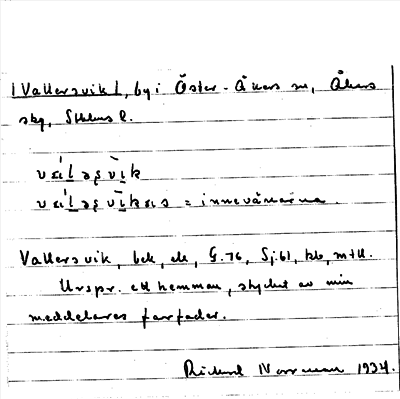 [Vallersvik], by i Öster-Åkers sn, Åkers
skg, Sthlms l.
vɛ́l̤əʂvìk
vɛ́l̤əʂvìksɪs = innevånarna.
Vallersvik, bek, ek, G. 76, Sj. 61, kb, mtl.
Urspr. ett hemman, stycket av min
meddelares farfader.
Rickard Norrman 1934.